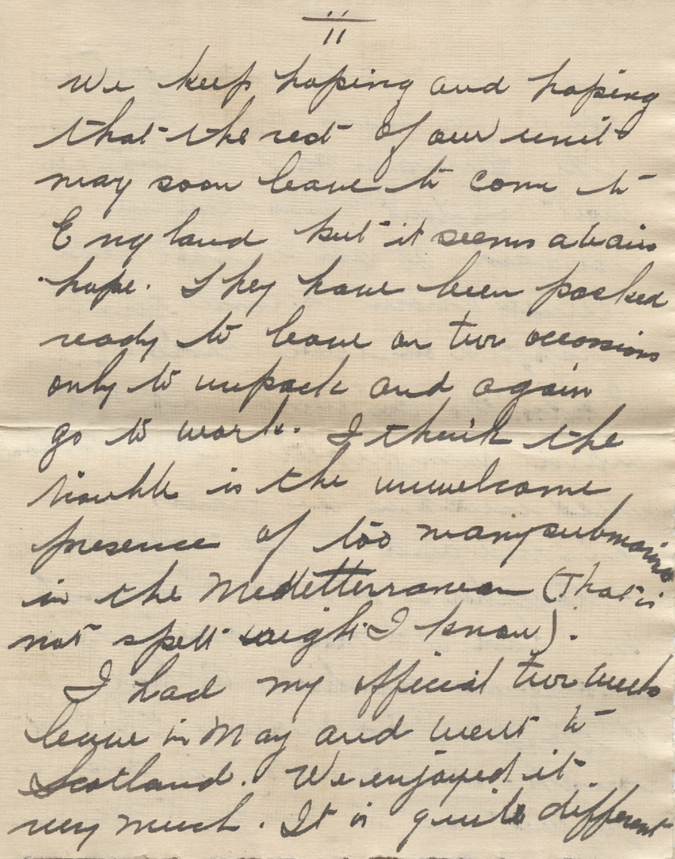 ii
We keep hoping and hoping
that the rest of our unit
may soon leave to come to
England but it seems a vain
hope. They have been packed
ready to leave on two occassions
only to unpack and again
go to work. I think the
trouble is the unwelcome
presence of too many submarines
in the Medetterranean (That is
not spelt right I know).
I had my official two weeks
leave in May and went to
Scotland. We enjoyed it
very much. It is quite different